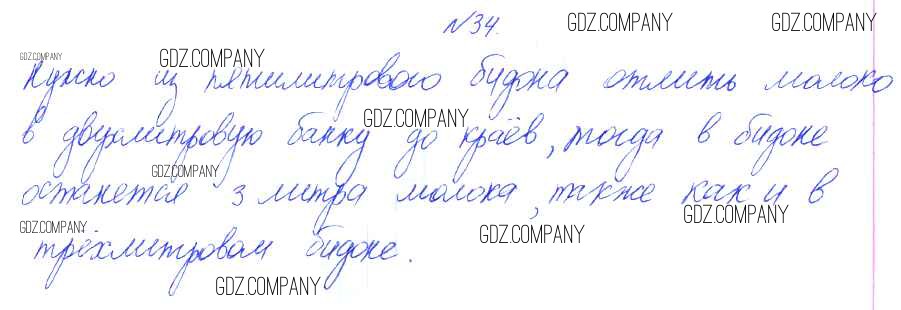 №34.
GDZ.COMPANY GDZ.COMPANY
GDZ.COMPANY GDZ.COMPANY
Нужно из пятилитрового бидона отлить молоко
GDZ.COMPANY
в двухлитровую банку до краёв, тогда в бидоне
GDZ.COMPANY
останется 3 литра молока, также как и в
GDZ.COMPANY
GDZ.COMPANY GDZ.COMPANY
трёхлитровом бидоне.
GDZ.COMPANY